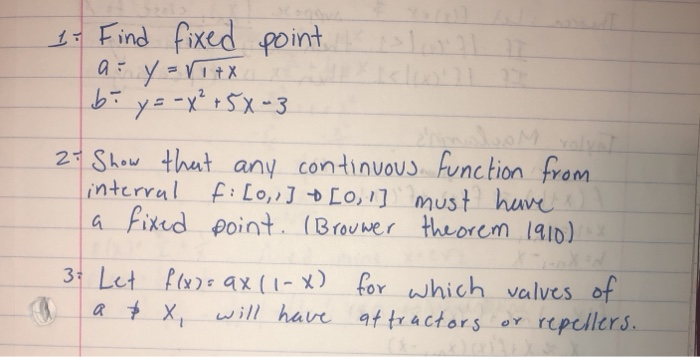 1- Find fixed point
a- y = √1+x
b- y = -x² + 5x - 3
2- Show that any continuous function from
interval f: [0,1] → [0,1] must have
a fixed point. (Brouwer theorem 1910)
3- Let f(x) = ax(1-x) for which values of
a & x₁ will have attractors or repellers.